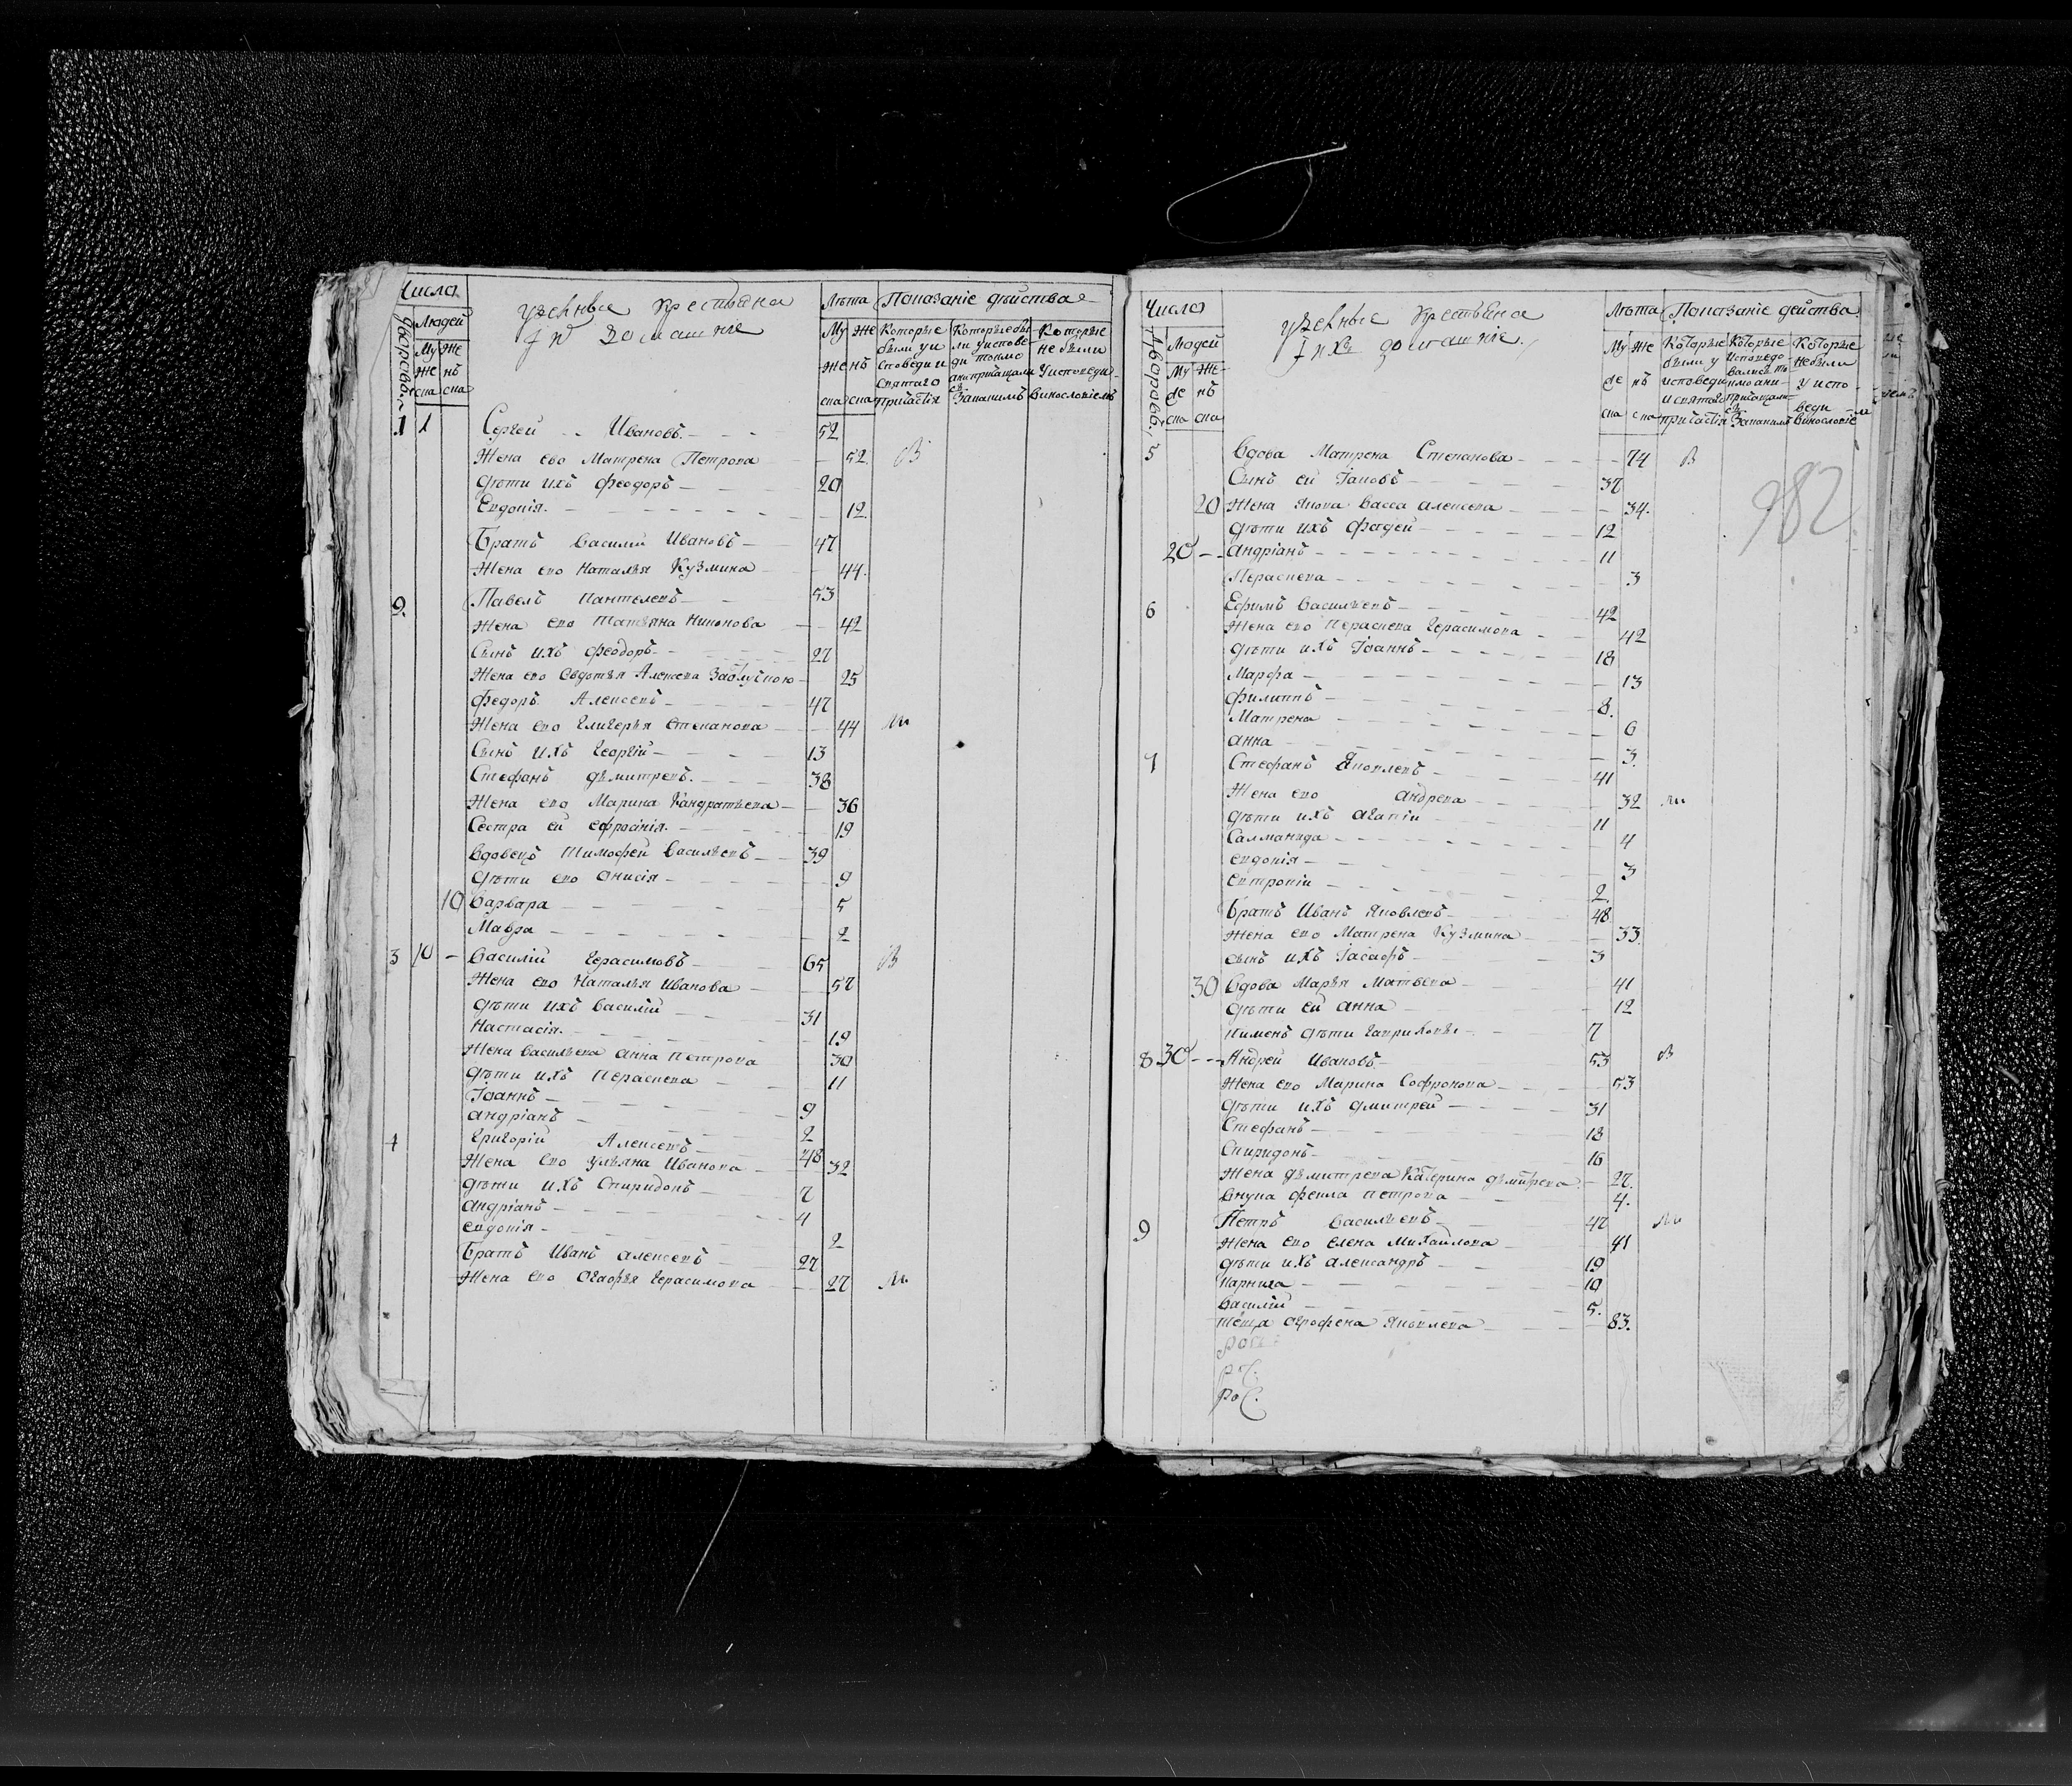 Числа
уделныя крестьяна
и домашніе
Лѣта
Показаніе дѣйства
дворовъ
Людей
Му же
же нъ
ска ска
Му же
же нъ
ска ска
Которые были у исповеди и святаго причастія
Которые были у исповеди токмо а не причащались и за какимъ
Которые не были у исповеди винословіемъ
1 1 Сергей Ивановъ 52
Жена ево Матрена Петрова 52 В
Дѣти ихъ Феодоръ 20
Евдокія 12
Братъ Василий Ивановъ 47
Жена ево Наталья Кузмина 44
2 Павелъ Пантелеевъ 53
Жена ево Татьяна Никонова 42
Сынъ ихъ Феодоръ 27
Жена ево Евдотья Алексева 25
Федоръ Алексеевъ 47
Жена ево Гликерья Степанова 44
Сынъ ихъ Георгій 13
Стефанъ Дѣмитревъ 38
Жена ево Марина Кандратьева 36
Сестра ей Ефросінія 19
Вдовецъ Тимофей Васильевъ 39
Дѣти ево Анисія 9
10 Варвара 5
Мавра 2
3 10 Василій Герасимовъ 65 В
Жена ево Наталья Иванова 57
Дѣти ихъ Василій 31
Настасія 19
Жена Васильева Анна Петрова 30
Дѣти ихъ Пераскева 11
Іоаннъ 9
Андріанъ 2
4 Григорій Алексеевъ 48
Жена ево Ульяна Иванова 32
Дѣти ихъ Спиридонъ 7
Андріанъ 4
Евдокія 2
Братъ Иванъ Алексеевъ 27
Жена ево Агафья Герасимова 27
Числа
уделныя крестьяна
и ихъ домашніе
Лѣта
Показаніе действа
дворовъ
Людей
Му же
же нъ
ска ска
Му же
же нъ
ска ска
Которые были у исповеди и святаго причастія
Которые исповедовались токмо а не причащались и за какимъ
Которые не были у исповеди винословіе
982
5 Вдова Матрена Степанова 74 В
Сынъ ей Іаковъ 37
20 Жена Якова Васса Алексева 34
Дѣти ихъ Фадей 12
20 Андріанъ 11
Пераскева 3
6 Ефимъ Васильевъ 42
Жена ево Пераскева Герасимова 42
Дѣти ихъ Іоаннъ 18
Марфа 13
Филиппъ 8
Матрена 6
Анна 3
7 Стефанъ Яковлевъ 41
Жена ево Андрева 32
Дѣти ихъ Агапіи 11
Салманида 4
Евдокія 3
Евтропіи 2
Братъ Иванъ Яковлевъ 48
Жена ево Матрена Кузмина 33
Сынъ ихъ Іасафъ 3
30 Вдова Марья Матвева 41
Дѣти ей Анна 12
Пименъ дѣти 7
8 30 Андрей Ивановъ 53 В
Жена ево Марина Софронова 53
Дѣти ихъ Дмитрей 31
Стефанъ 18
Спиридонъ 16
Жена Дѣмитрева Катерина Дѣмитрева 27
Внука Фекла Петрова 4
9 Петръ Васильевъ 47
Жена ево Елена Михайлова 41
Дѣти ихъ Александръ 19
Карнила 10
Василій 5
Теща Агрофена Яковлева 83